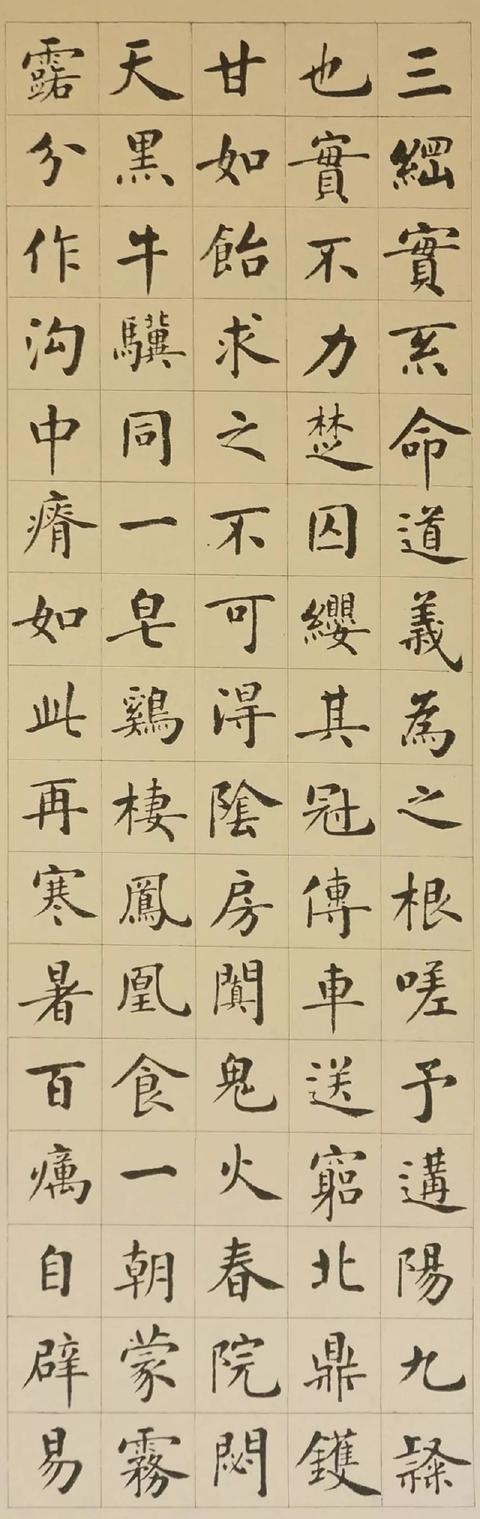 三綱實系命道義為之根嗟予遘陽九隸
也實不力楚囚纓其冠傳車送窮北鼎鑊
甘如飴求之不可得陰房闃鬼火春院閟
天黑牛驥同一皂鷄棲鳳凰食一朝蒙霧
露分作沟中瘠如此再寒暑百癘自辟易